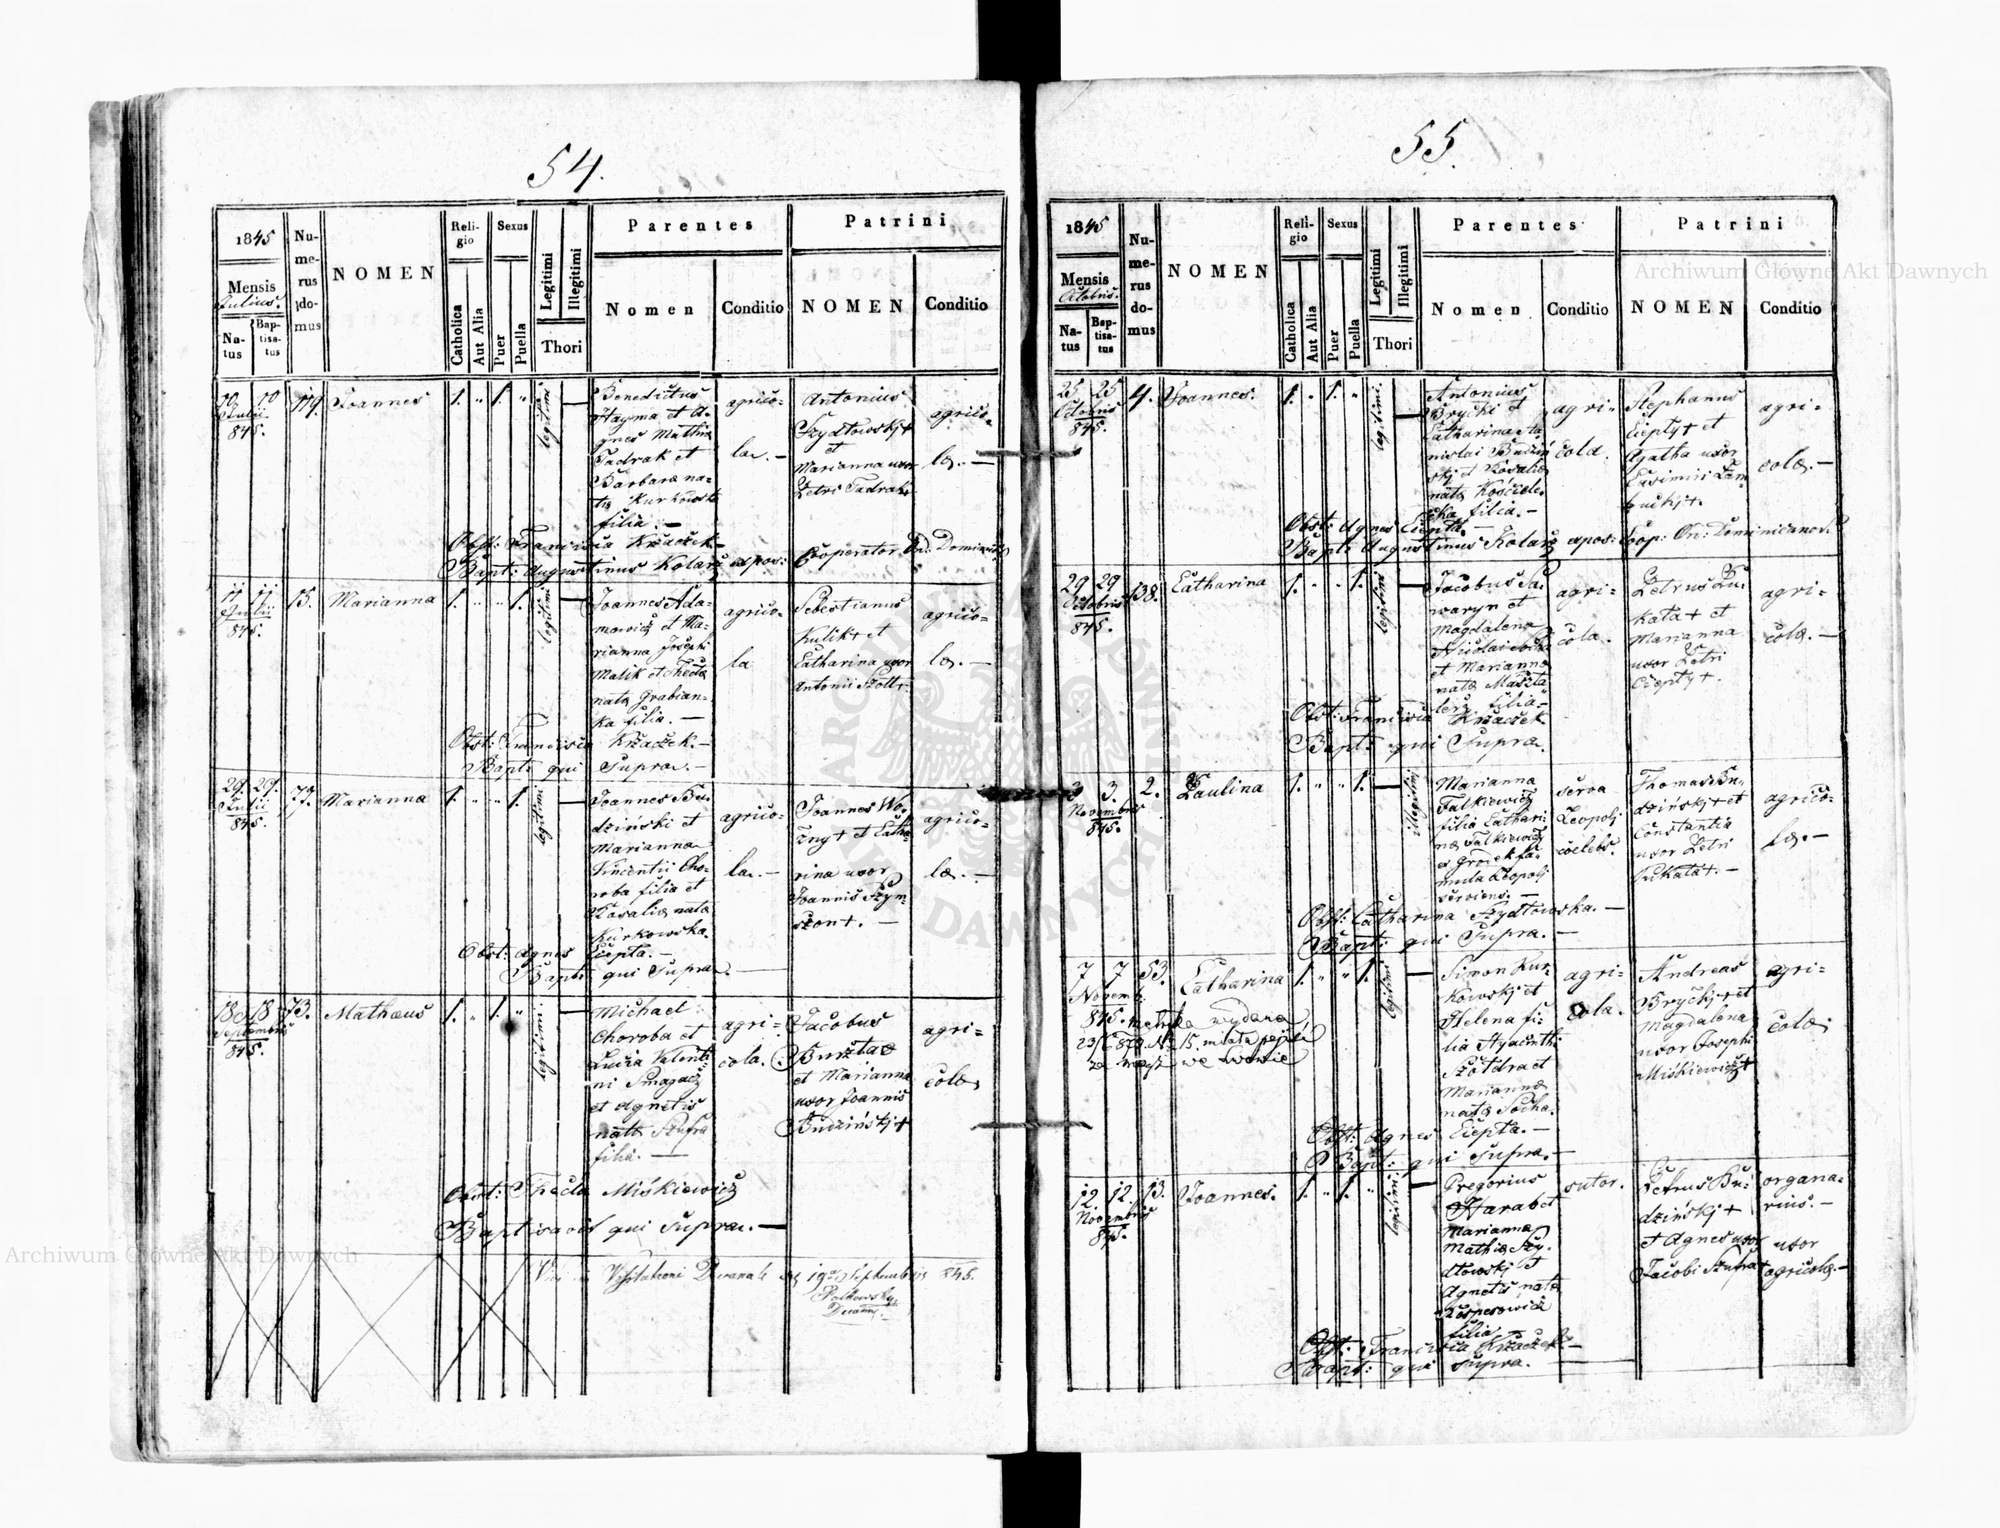 54.
1845
Mensis
Julius.
Na-
tus
Bap-
tisa-
tus
Nu-
me-
rus
do-
mus
NOMEN
Reli-
gio
Catholica
Aut Alia
Sexus
Puer
Puella
Legitimi
Illegitimi
Thori
Parentes
Nomen
Conditio
Patrini
NOMEN
Conditio
10 10
Julii
845.
119.
Joannes
1. " 1. "
legitimi
Benedictus
Hayma et A-
gnes Mathiæ
Tadrak et
Barbara na-
ta Kurkowska
filia. —
agrico-
la. —
Antonius
Szydłowskj +
et
Marianna uxor
Petri Tadrak
agrico-
læ. —
Obst: Francisca Krzaczek
Bapt: Augustinus Kolarz expos: Cooperator Or: Dominic
11 11
Julii
845.
15.
Marianna
1. " " 1.
legitimi
Joannes Ada-
mowicz et Ma-
rianna Josephi
Malik et Thecla
nata Grabian-
ka filia. —
agrico-
la
Sebestianus
Kulik + et
Catharina uxor
Antonii
agrico-
læ. —
Obst: Francisca Krzaczek. —
Bapt: qui Supra. —
29. 29.
Julii
845.
77.
Marianna
1. " " 1.
legitimi
Joannes Bu-
dziński et
Marianna
Vincentii Cho-
roba filia et
Rosaliæ nata
Kurkowska.
agrico-
la. —
Joannes Wo-
zny + et Catha-
rina uxor
Joannis Szym-
szon +. —
agrico-
læ. —
Obst: Agnes Ciepta. —
Bapt: qui Supra. —
18 18
Septembris
845.
73.
Mathæus
1. " 1. "
legitimi
Michael
Choroba et
Lucia Valenti-
ni Smagacz
et Agnetis
nata Szufra
filia. —
agri-
cola.
Jacobus
Burzta
et Marianna
uxor Joannis
Budzińskj +
agri-
colæ
Obst: Thecla Miśkiewicz
Baptisavit qui Supra. —
Visitationi Decanali 19 Septembris 845.
55.
1845
Mensis
Octobris.
Na-
tus
Bap-
tisa-
tus
Nu-
me-
rus
do-
mus
NOMEN
Reli-
gio
Catholica
Aut Alia
Sexus
Puer
Puella
Legitimi
Illegitimi
Thori
Parentes
Nomen
Conditio
Patrini
NOMEN
Conditio
25 25
Octobris
845.
4.
Joannes.
1. " 1. "
legitimi.
Antonius
Brycki et
Catharina Sta-
nislai Budziń
skj et Rosaliæ
nata Kościele-
cka filia. —
agri-
cola.
Stephanus
Ciepty + et
Agatha uxor
Casimiri
agri-
colæ. —
Obst: Agnes Ciepta. —
Bapt: Augustinus Kolarz expos: Coop: Or: Dominicanor:
29 29
Octobris
845.
138.
Catharina
1. " " 1.
legitimi
Jacobus Sa-
waryn et
Magdalena
Nicolai
et Marianna
nata Maszta-
lerz filia —
agri-
cola.
Petrus Łu-
kata + et
Marianna
uxor Petri
Ciepty +.
agri-
colæ. —
Obst: Francisca Krzaczek
Bapt: qui Supra.
3 3.
Novembris
845.
2.
Paulina
1. " " 1.
illegitimi
Marianna
Falkiewicz
filia Cathari-
næ Falkiewicz
e Grodek fa-
mula Leopoli
serviens. —
serva
Leopoli
coelebs.
Thomas Bu-
dzińskj + et
Constantia
uxor Petri
Łukata +. —
agrico-
læ. —
Obst: Catharina Szydtowska. —
Bapt: qui Supra. —
7 7
Novemb:
845.
53.
Catharina
metryka wydana
23/6 879. No 15.
we Lwowie
1. " " 1.
legitimi
Simon Kur-
kowskj et
Helena fi-
lia Hyacinthi
Szotdra et
Mariannæ
nata Socha.
agri-
cola.
Andreas
Bryckj + et
Magdalena
uxor Josephi
Miśkiewicz +
agri-
colæ
Obst: Agnes Ciepta. —
Bapt: qui Supra. —
12. 12.
Novembris
845.
13.
Joannes.
1. " 1. "
legitimi
Gregorius
Harab et
Marianna
Mathiæ Szy-
dtowskj et
Agnetis nata
Kasperowicz
filia
sutor.
Petrus Bu-
dzińskj +
et Agnes uxor
Jacobi Szufra +
organa-
rius. —
uxor
agricolæ. —
Obst: Francisca Krzaczek —
Bapt: qui supra.
Archiwum Główne Akt Dawnych
Archiwum Główne Akt Dawnych
ARCHIWUM GŁÓWNE AKT DAWNYCH